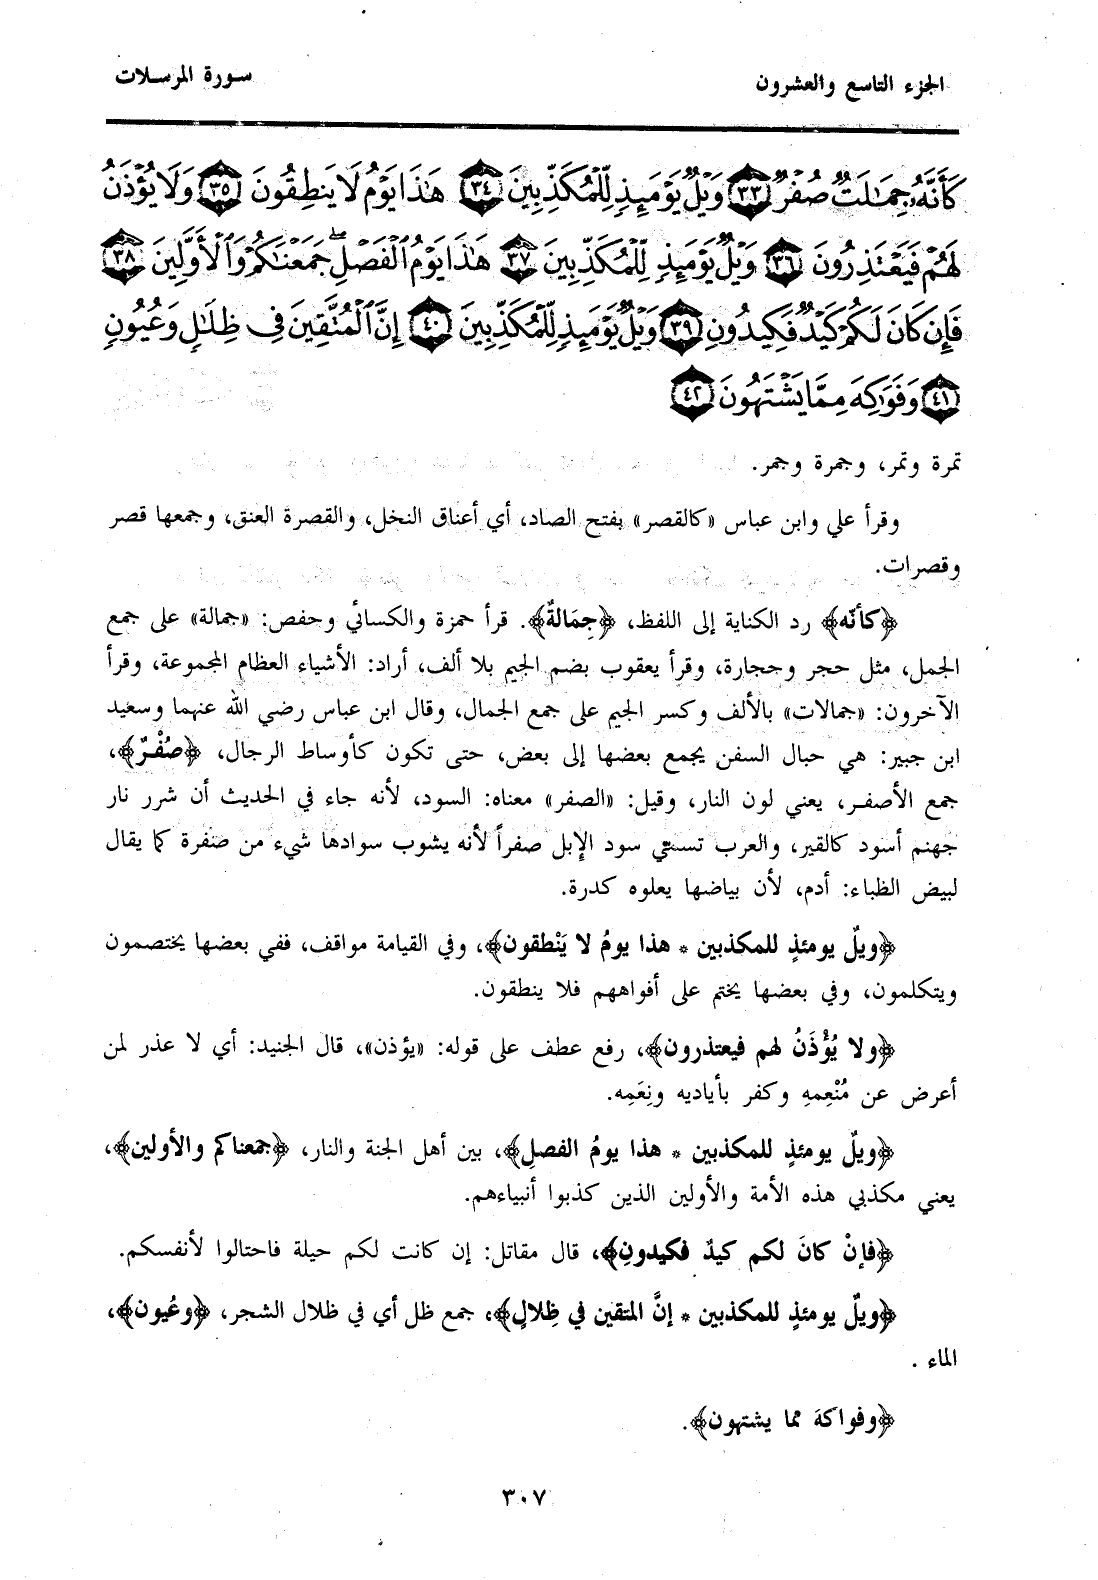 الجزء التاسع والعشرون
سورة المرسلات
كَأَنَّهُۥ جِمَٰلَتٌ صُفْرٌ ٣٣ وَيْلٌ يَوْمَئِذٍ لِّلْمُكَذِّبِينَ ٣٤ هَٰذَا يَوْمُ لَا يَنطِقُونَ ٣٥ وَلَا يُؤْذَنُ
لَهُمْ فَيَعْتَذِرُونَ ٣٦ وَيْلٌ يَوْمَئِذٍ لِّلْمُكَذِّبِينَ ٣٧ هَٰذَا يَوْمُ ٱلْفَصْلِ ۖ جَمَعْنَٰكُمْ وَٱلْأَوَّلِينَ ٣٨
فَإِن كَانَ لَكُمْ كَيْدٌ فَكِيدُونِ ٣٩ وَيْلٌ يَوْمَئِذٍ لِّلْمُكَذِّبِينَ ٤٠ إِنَّ ٱلْمُتَّقِينَ فِى ظِلَٰلٍ وَعُيُونٍ
٤١ وَفَوَٰكِهَ مِمَّا يَشْتَهُونَ ٤٢
تمرة وتمر، وجمرة وجمر.
وقرأ علي وابن عباس «كالقصر» بفتح الصاد، أي أعناق النخل، والقصرة العنق، وجمعها قصر
وقصرات.
﴿كأنّه﴾ رد الكناية إلى اللفظ، ﴿جِمَالةٌ﴾. قرأ حمزة والكسائي وحفص: «جمالة» على جمع
الجمل، مثل حجر وحجارة، وقرأ يعقوب بضم الجيم بلا ألف، أراد: الأشياء العظام المجموعة، وقرأ
الآخرون: «جمالات» بالألف وكسر الجيم على جمع الجمال، وقال ابن عباس رضي الله عنهما وسعيد
ابن جبير: هي حبال السفن يجمع بعضها إلى بعض، حتى تكون كأوساط الرجال، ﴿صُفْرٌ﴾،
جمع الأصفر، يعني لون النار، وقيل: «الصفر» معناه: السود، لأنه جاء في الحديث أن شرر نار
جهنم أسود كالقير، والعرب تسمي سود الإبل صفراً لأنه يشوب سوادها شيء من صفرة كما يقال
لبيض الظباء: أدم، لأن بياضها يعلوه كدرة.
﴿ويلٌ يومئذٍ للمكذبين * هذا يومُ لا يَنْطقون﴾، وفي القيامة مواقف، ففي بعضها يختصمون
ويتكلمون، وفي بعضها يختم على أفواههم فلا ينطقون.
﴿ولا يُؤْذَنُ لهم فيعتذرون﴾، رفع عطف على قوله: «يؤذن»، قال الجنيد: أي لا عذر لمن
أعرض عن مُنْعِمهِ وكفر بأياديه ونِعَمِه.
﴿ويلٌ يومئذٍ للمكذبين * هذا يومُ الفصلِ﴾، بين أهل الجنة والنار، ﴿جمعناكم والأولين﴾،
يعني مكذبي هذه الأمة والأولين الذين كذبوا أنبياءهم.
﴿فإنْ كانَ لكم كيدٌ فكيدونِ﴾، قال مقاتل: إن كانت لكم حيلة فاحتالوا لأنفسكم.
﴿ويلٌ يومئذٍ للمكذبين * إنَّ المتقين في ظِلالٍ﴾، جمع ظل أي في ظلال الشجر، ﴿وعُيون﴾،
الماء .
﴿وفواكهَ مما يشتهون﴾.
٣٠٧